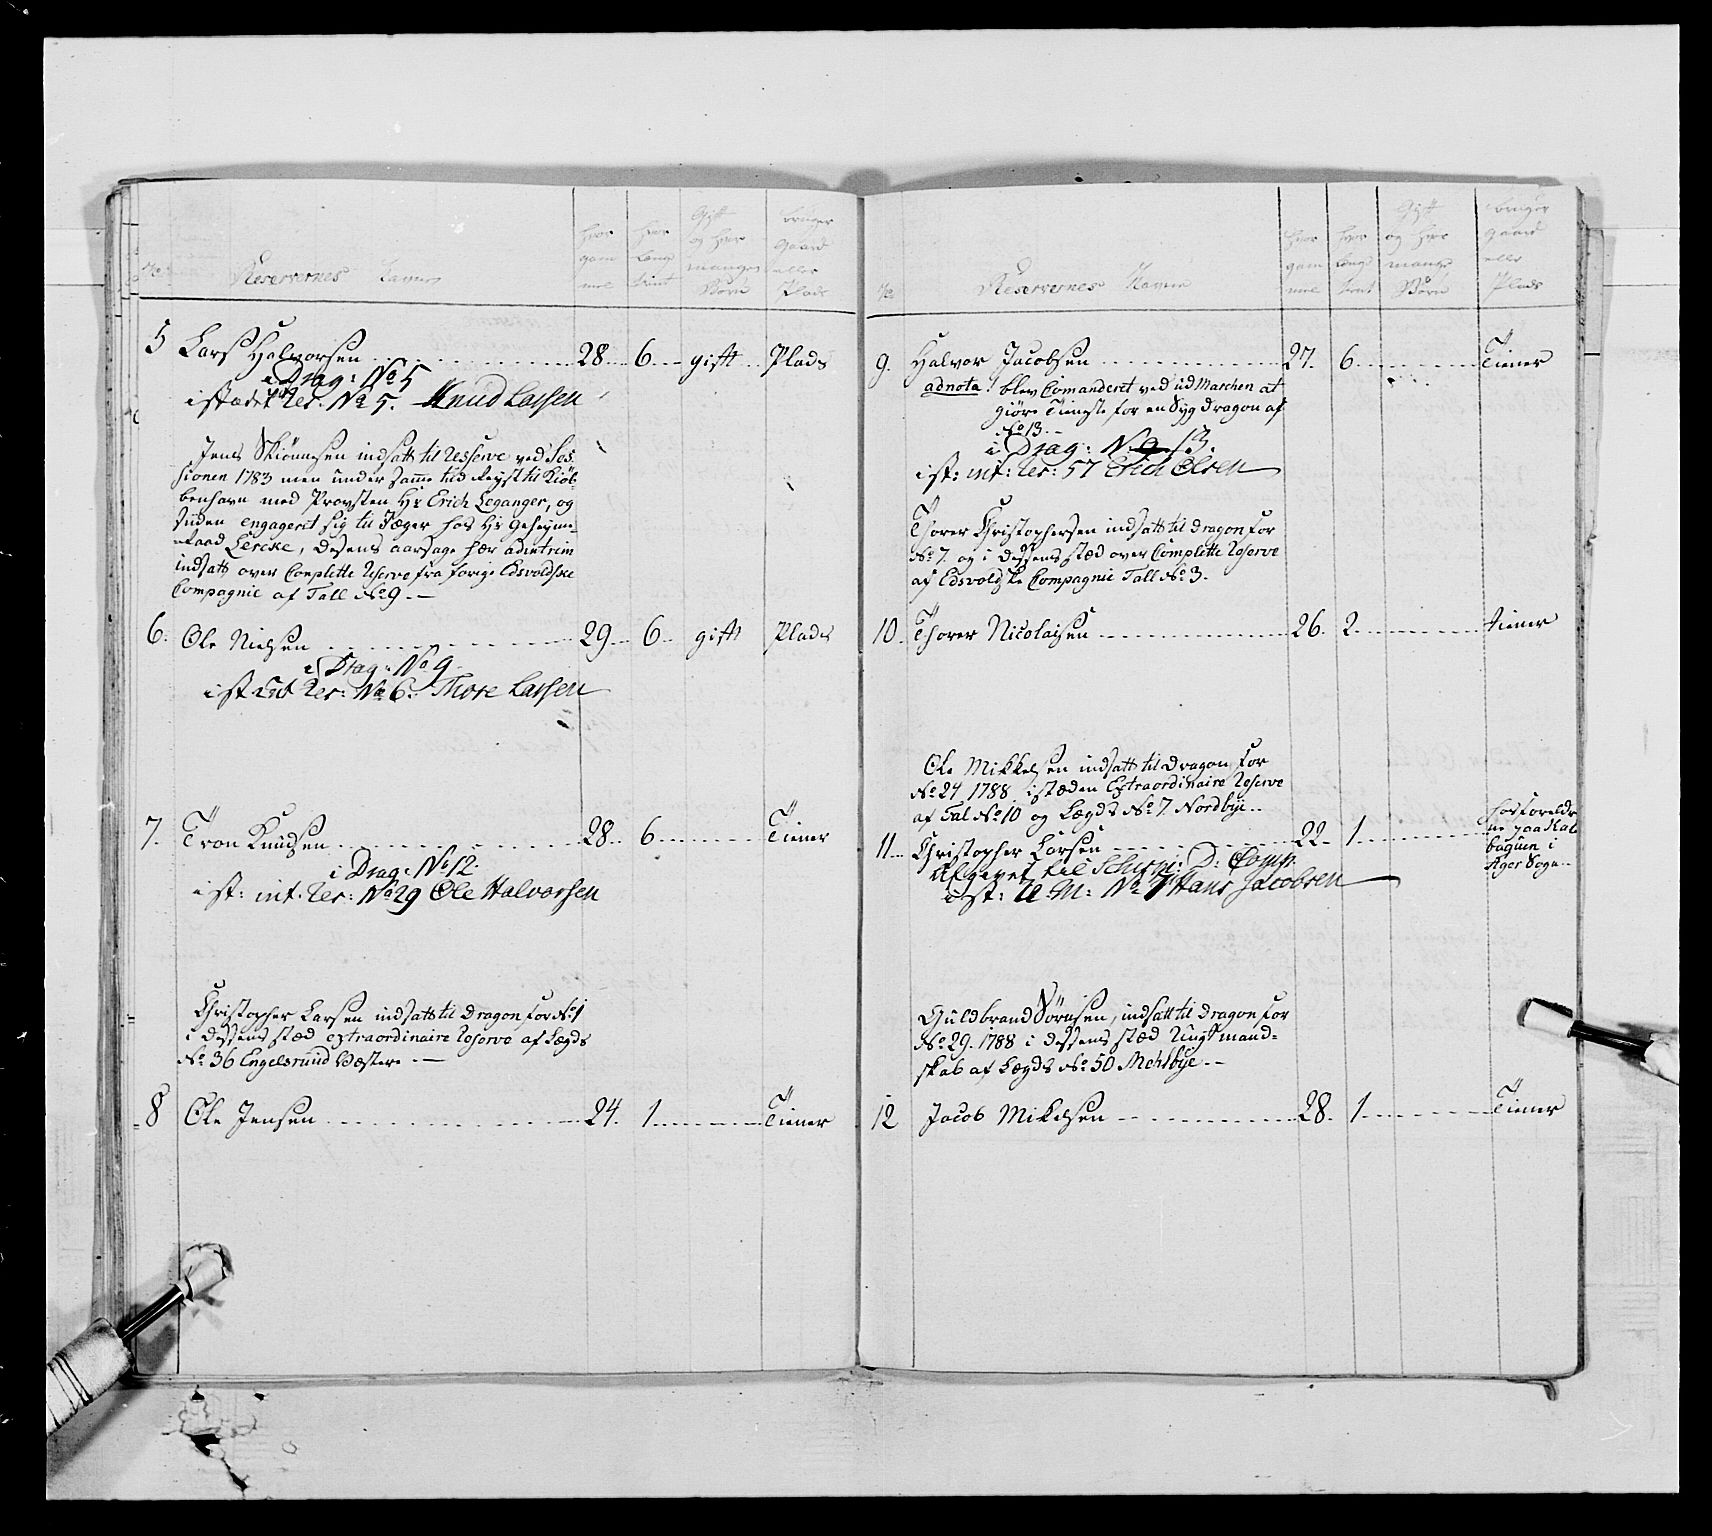 No
Reservernes Navne
hvor
gam
mel
hvor
Længe
tient
Gift
og hvor
mange
Børn
bruger
Gaard
eller
Plads
5 Lars Halvorsen 28 6 gift Plads
i Drag: No 5
istædet Res: No 5. Knud Larsen
Jens Skiønnesen indsatt til Resserve ved Ses-
sionen 1783 men under samme tid Reyst til Kiøb-
benhavn med Provsten Hr Erich Leganger, og
siden engageret sig til Jæger hos Hr Geheyme-
Raad Lercke, desens aarsage hær adintrim
indsatt over Complette Reserve fra forige Edsvoldske
Compagnie af Tall No 9.
6. Ole Nielsen 29 6 gift Plads
i Drag: No 9
ist int Res: No 6. Thore Larsen
7. Tron Knudsen 28 6 Tiener
i Drag: No 12
i st: int. Res: No 29 Ole Halvorsen
Christopher Larsen indsatt til dragon for No 1
i dessens stæd extraordinaire Reserve af Lægds
No 36 Engelsrund Væstere
8 Ole Jensen 24 1 Tiener
No
Reservernes Navne
hvor
gam
mel
hvor
Længe
tient
Gift
og hvor
mange
Børn
bruger
gaard
eller
Plads
9. Halvor Jacobsen 27. 6 Tiener
adnota! blev Comanderet ved ud Marschen at
giøre Tieneste for en Syg dragon af
No 13.
i Drag: No 13.
i st: int: Res: 57 Erich Olsen
Thorer Christophersen indsatt til dragon for
No 7. og i dessens stæd over Complette Reserve
af Edsvoldske Compagnie Tall No 3.
10. Thorer Nicolaisen 26. 2 tiener
Ole Mikkelsen indsatt til dragon for
No 24 1788 i stæden Extraordinaire Reserve
af Tal No 10 og Lægds No 7 Nordbye
11 Christopher Larsen 22 1 hos foreldr
ne paa Kal
baguen i
Ager Sogn
Afgivet til Schipi: D: Comp.
i st: U: M: No 7 Hans Jacobsen
Guldbrand Sørensen, indsatt til dragon for
No 29. 1788 i dessens stæd Ungt mand-
skab af Lægds No 50 Mehlbye
12 Jacob Mikelsen 28. 1 Tiener